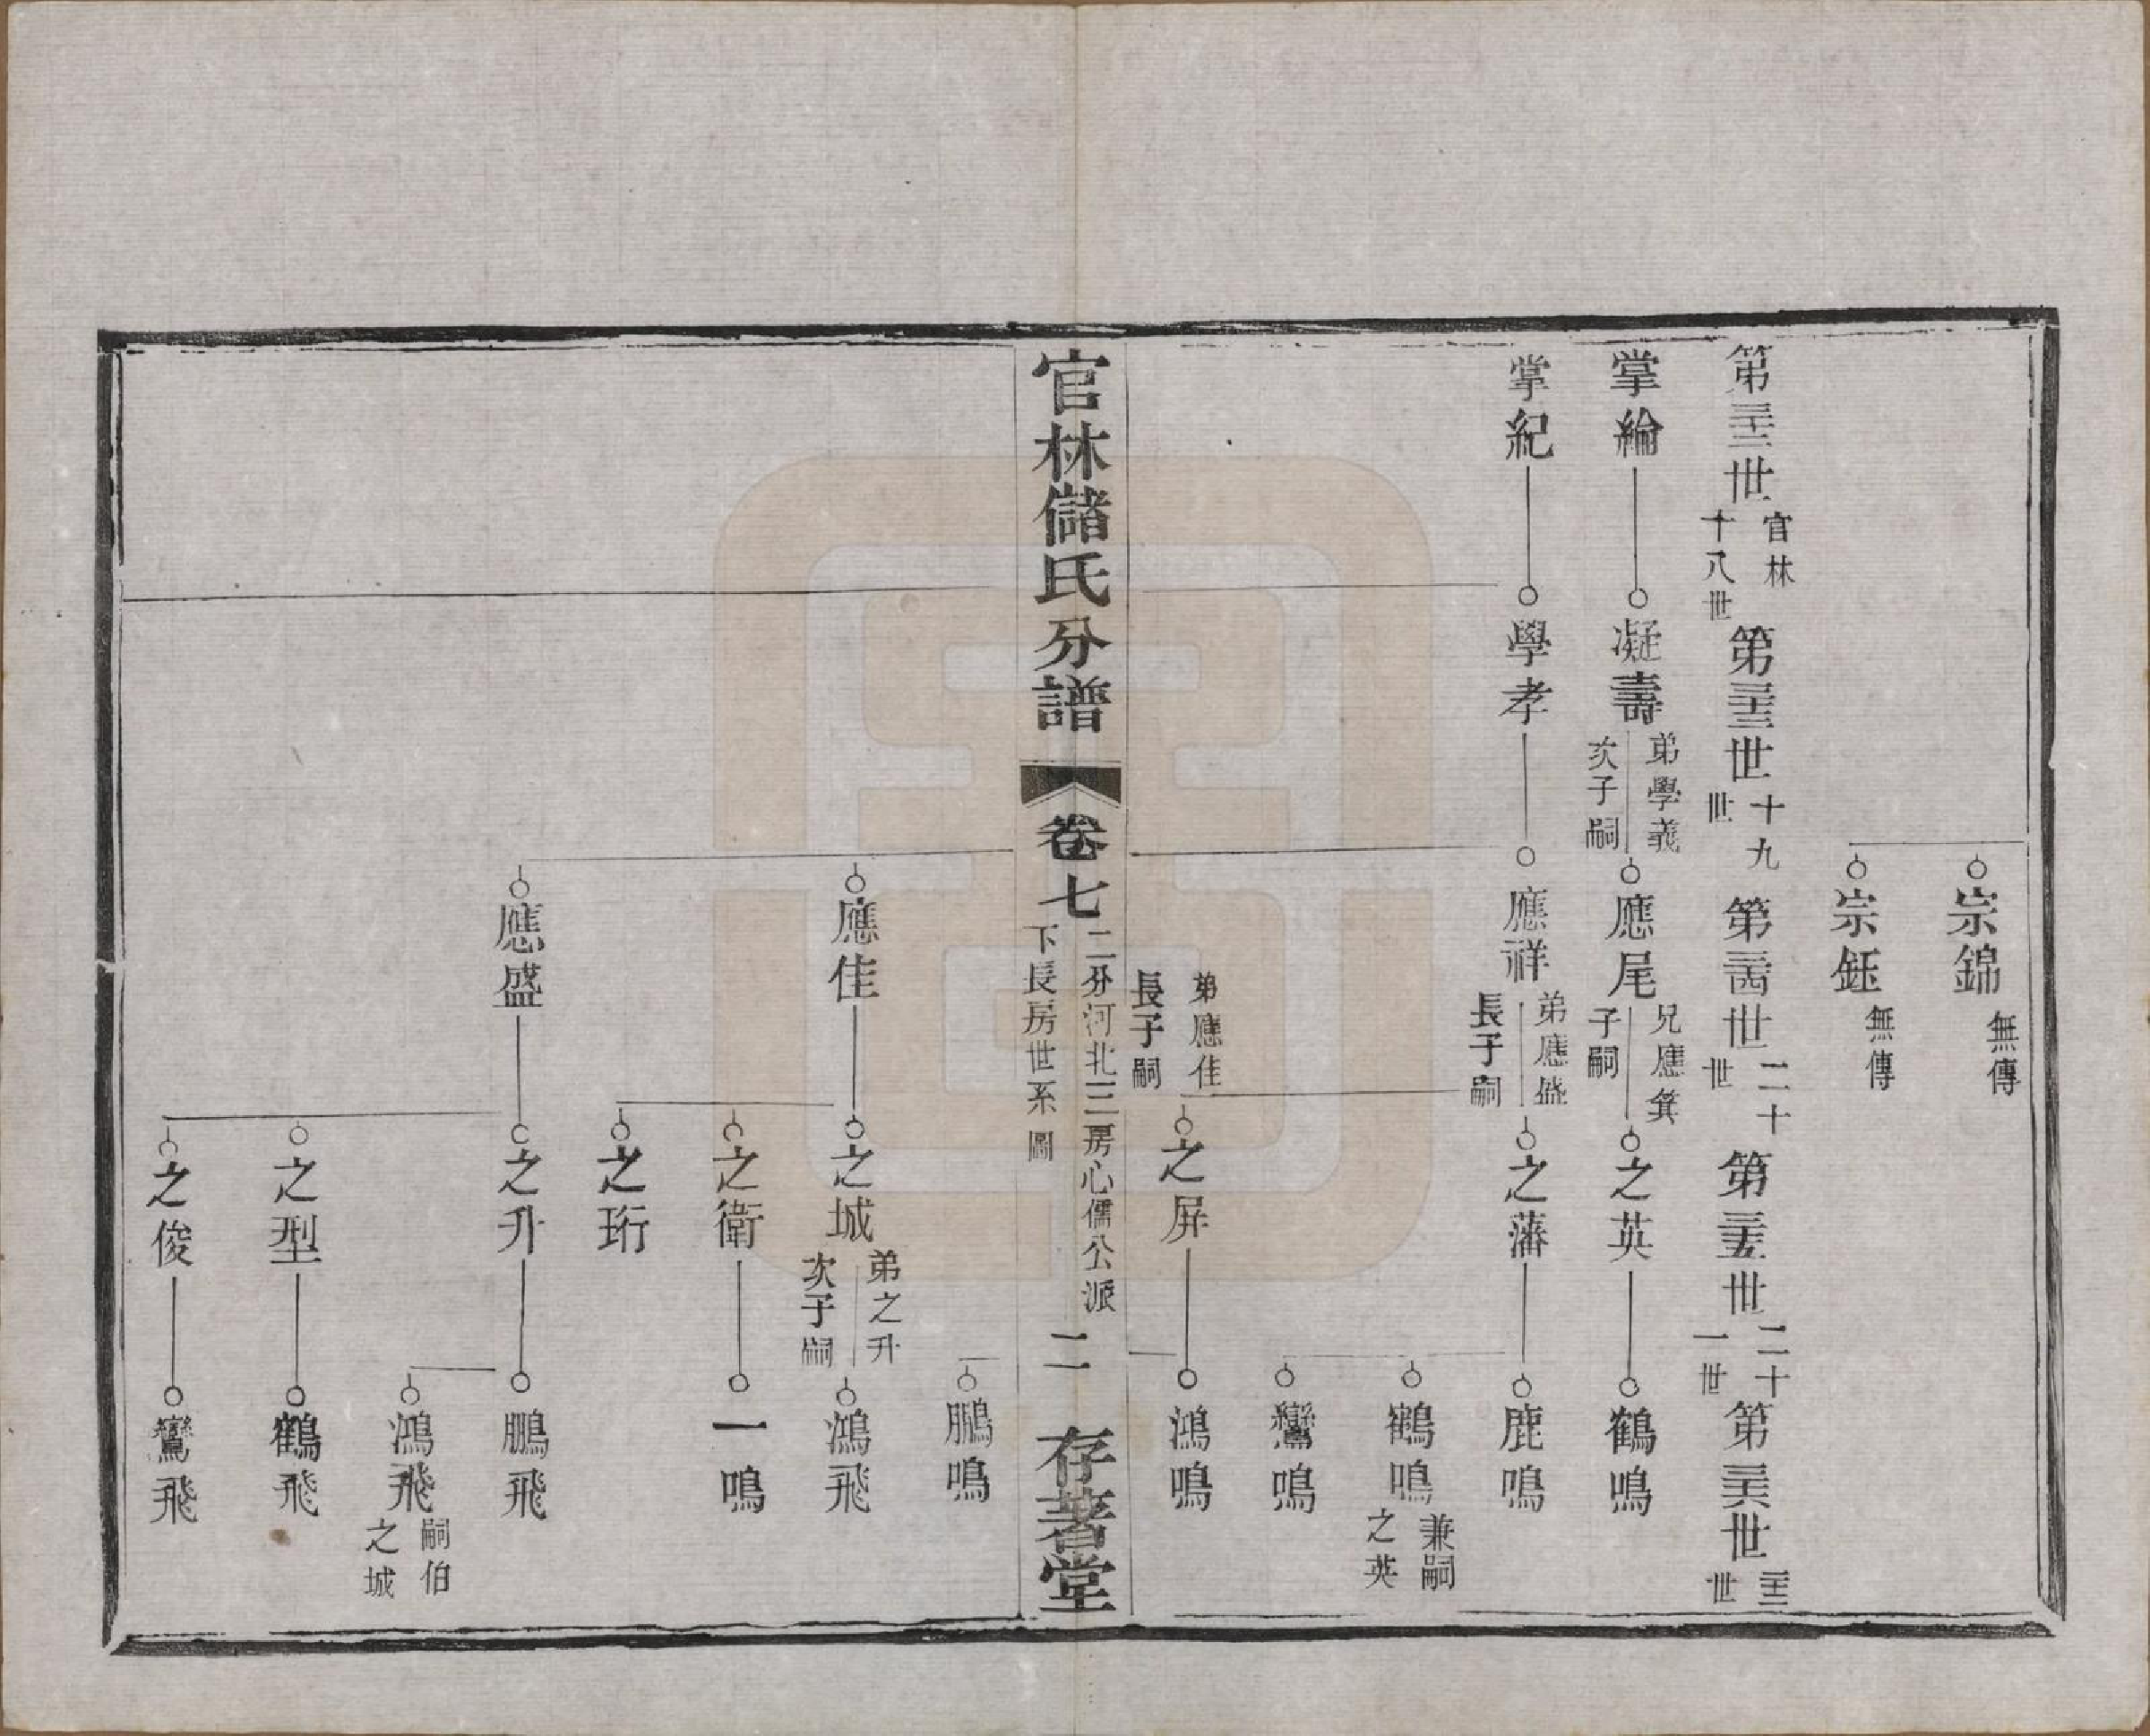 宗錦 無傳
宗鈺 無傳
第二十二世 官林十八世 第二十三世 十九世 第二十四世 二十世 第二十五世 二十一世 第二十六世 二十二世
掌綸 凝壽 弟學義次子嗣 應尾 兄應箕子嗣 之英 鶴鳴
掌紀 學孝 應祥 弟應盛長子嗣 之藩 鹿鳴
鶴鳴 兼嗣之英
鸞鳴
弟應佳長子嗣 之屏 鴻鳴
官林儲氏分譜 卷七 二分河北三房心儒公派下長房世系圖 二 存著堂
鵬鳴
應佳 之城 弟之升次子嗣 鴻飛
之衛 一鳴
之珩
應盛 之升 鵬飛
鴻飛 嗣伯之城
之型 鶴飛
之俊 鸞飛